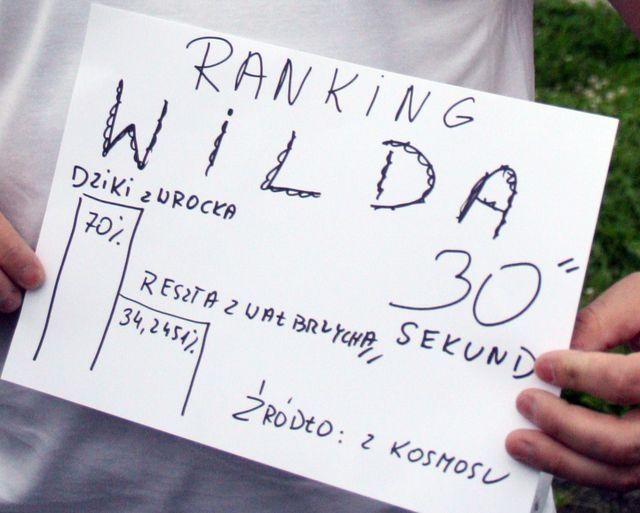 RANKING
WILDA
DZIKI Z WROCKA
70%
30"
RESZTA Z WAŁBRZYCHA,, SEKUND
34,2451%
ŹRÓDŁO: Z KOSMOSU